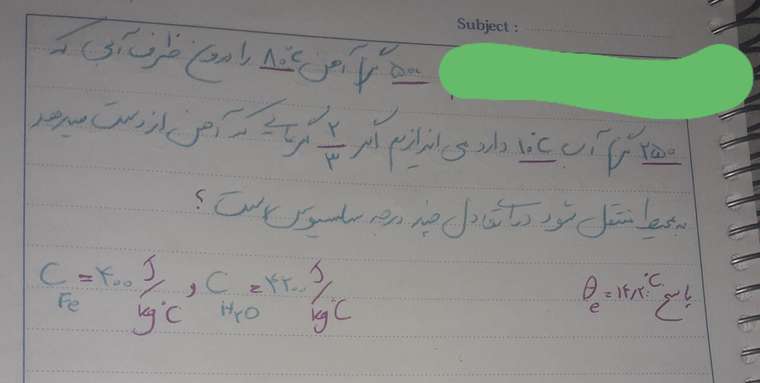 Subject :
۵۰۰ گرم آهن ۸۰°C را درون ظرف آبی که
۲۵۰ گرم آب ۱۰°C دارد می اندازیم اگر ۲/۳ گرمایی که آهن از دست میدهد
به محیط منتقل شود دمای تعادل چند درجه سلسیوس است ؟
C Fe = ۴۰۰ J/kg°C و C H₂O = ۴۲۰۰ J/kg°C پاسخ θe = ۱۴/۲°C